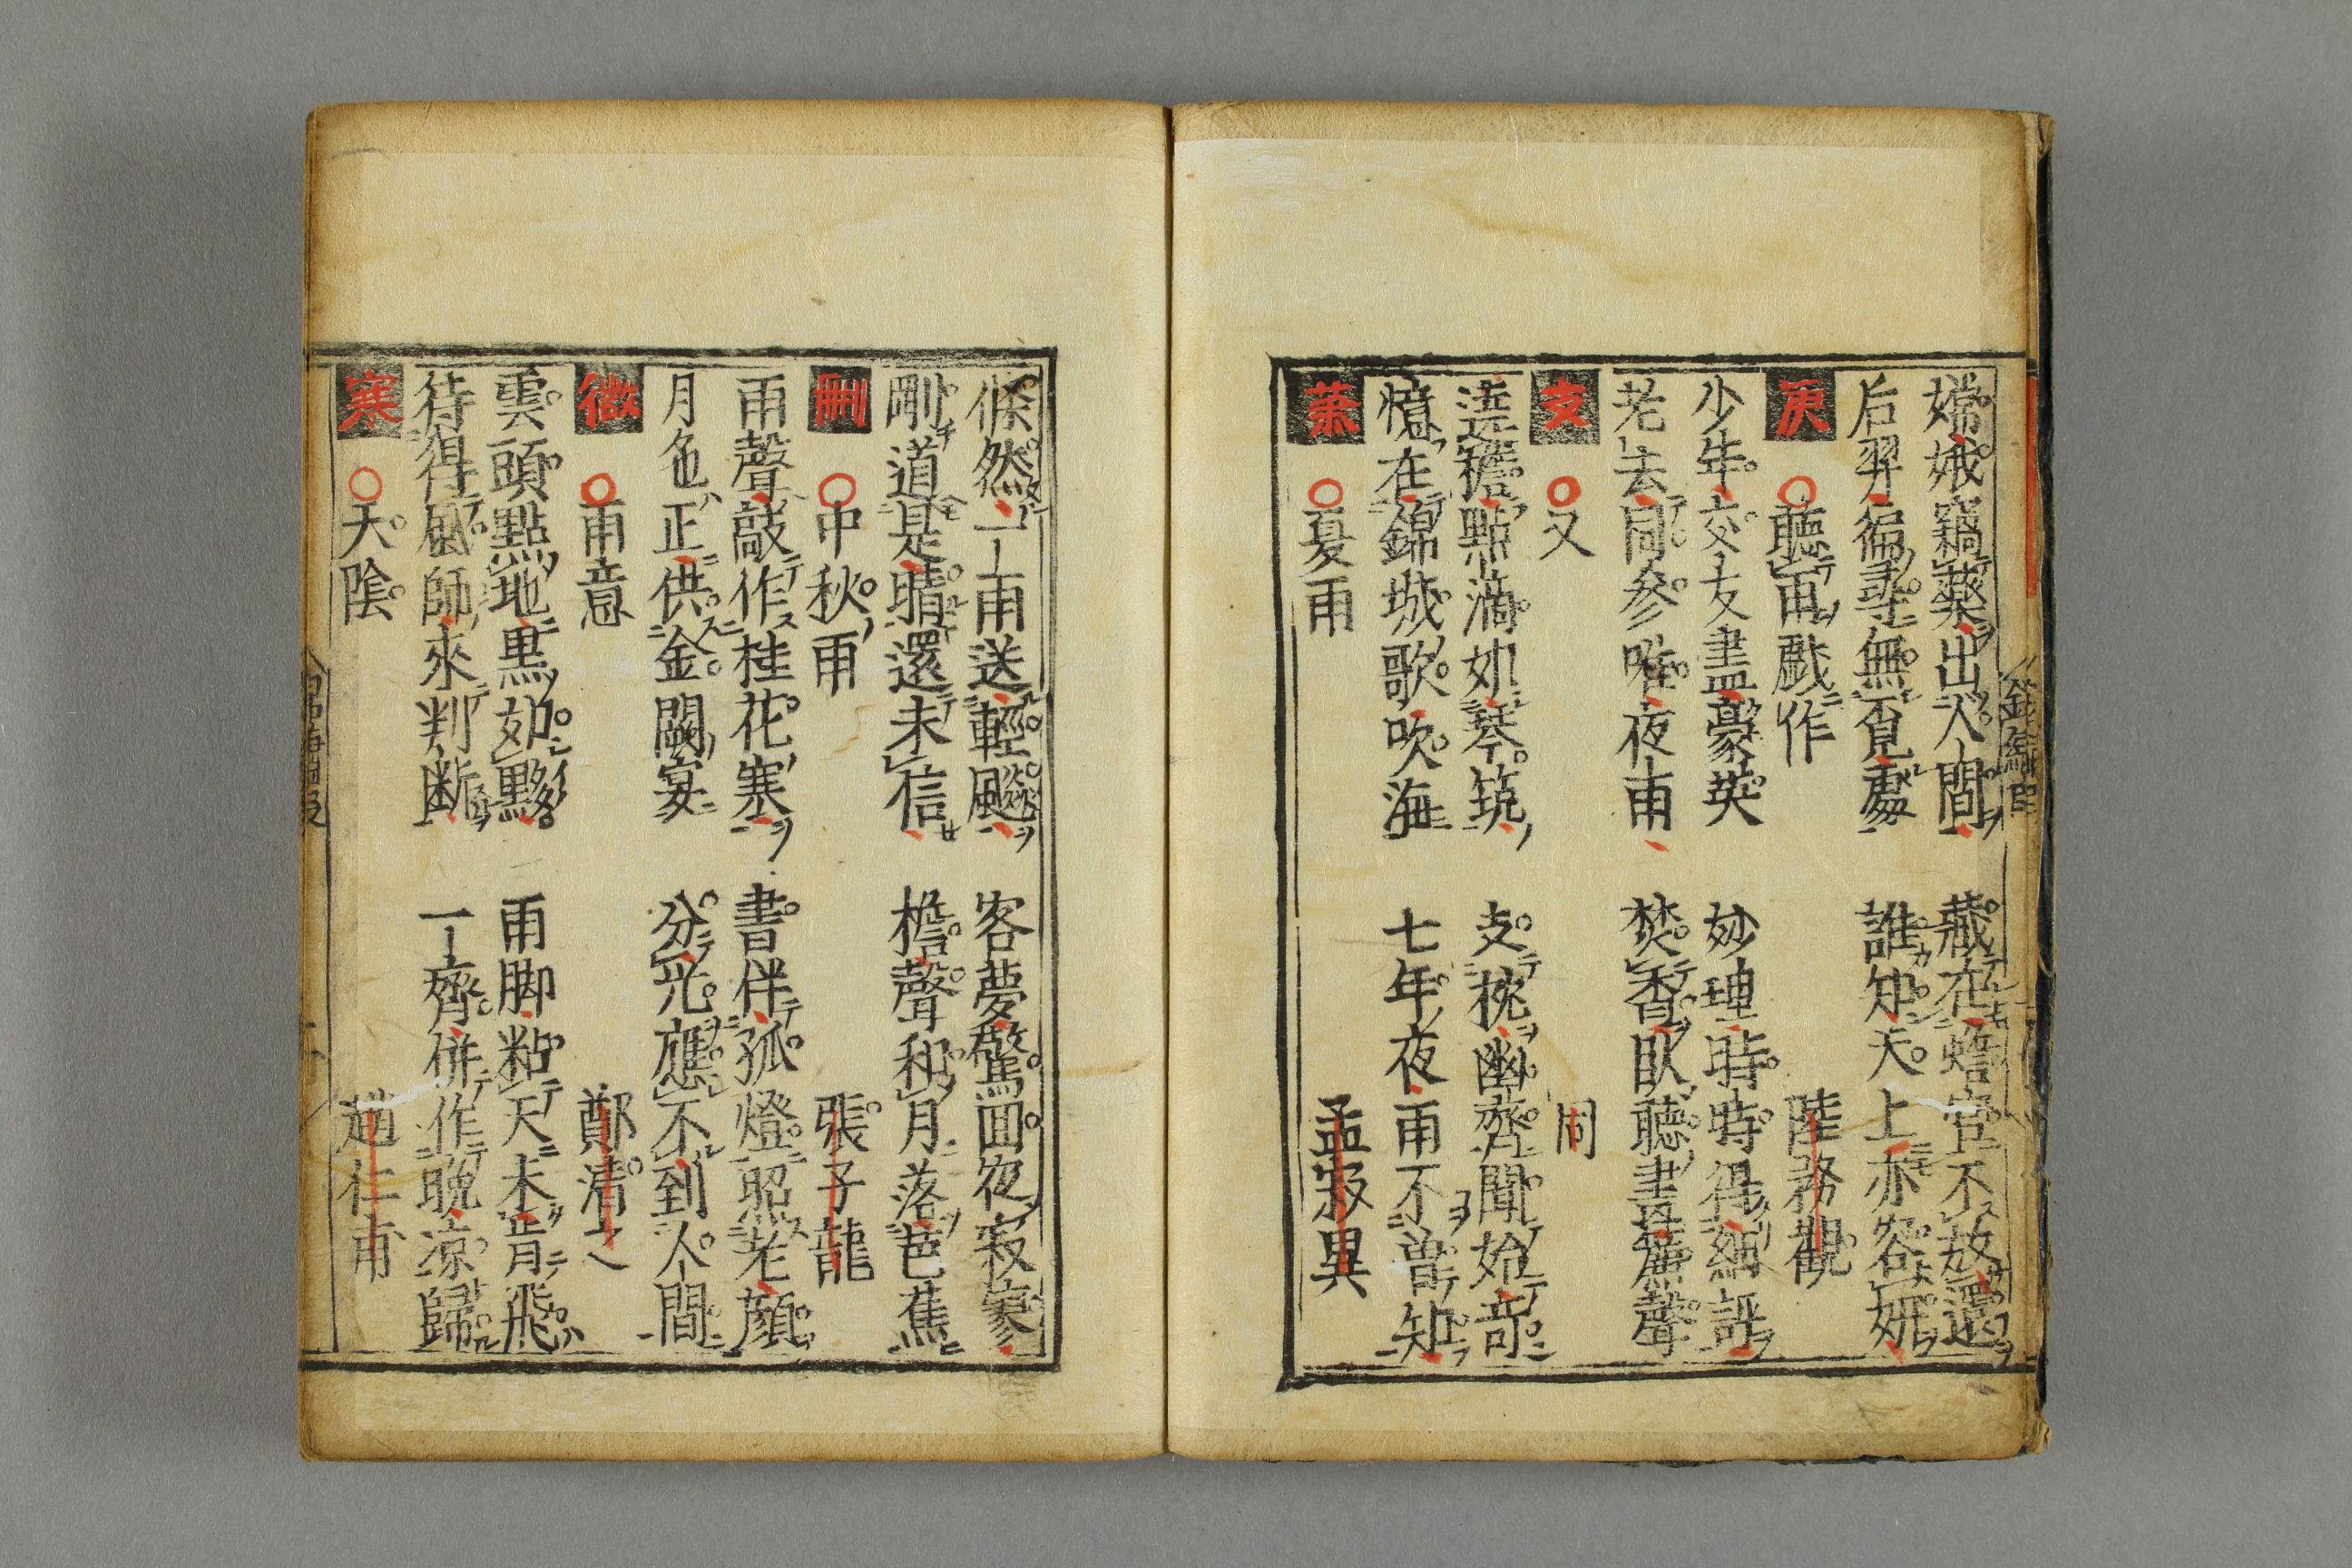 嫦娥竊藥出人間 藏在蟾宮不放還
后羿徧尋無覓處 誰知天上亦容姧
庚 聽雨戯作 陸務觀
少年交友盡豪英 妙理時時得細評
老去同參唯夜雨 焚香臥聽畫簷聲
支 又 同
遶簷點滴如琴筑 支枕幽齋聞始奇
憶在錦城歌吹海 七年夜雨不曾知
蕭 夏雨 孟寂異
倏然一雨送輕飈 客夢驚回夜寂寥
剛道是晴還未信 檐聲和月落芭蕉
刪 中秋雨 張子龍
雨聲敲作桂花寒 書伴孤燈照老顔
月色正供金闕宴 分光應不到人間
微 雨意 鄭清之
雲頭點地黒如黟 雨脚粘天未肯飛
待得風師來判断 一齊併作晩凉歸
寒 天陰 趙仁甫